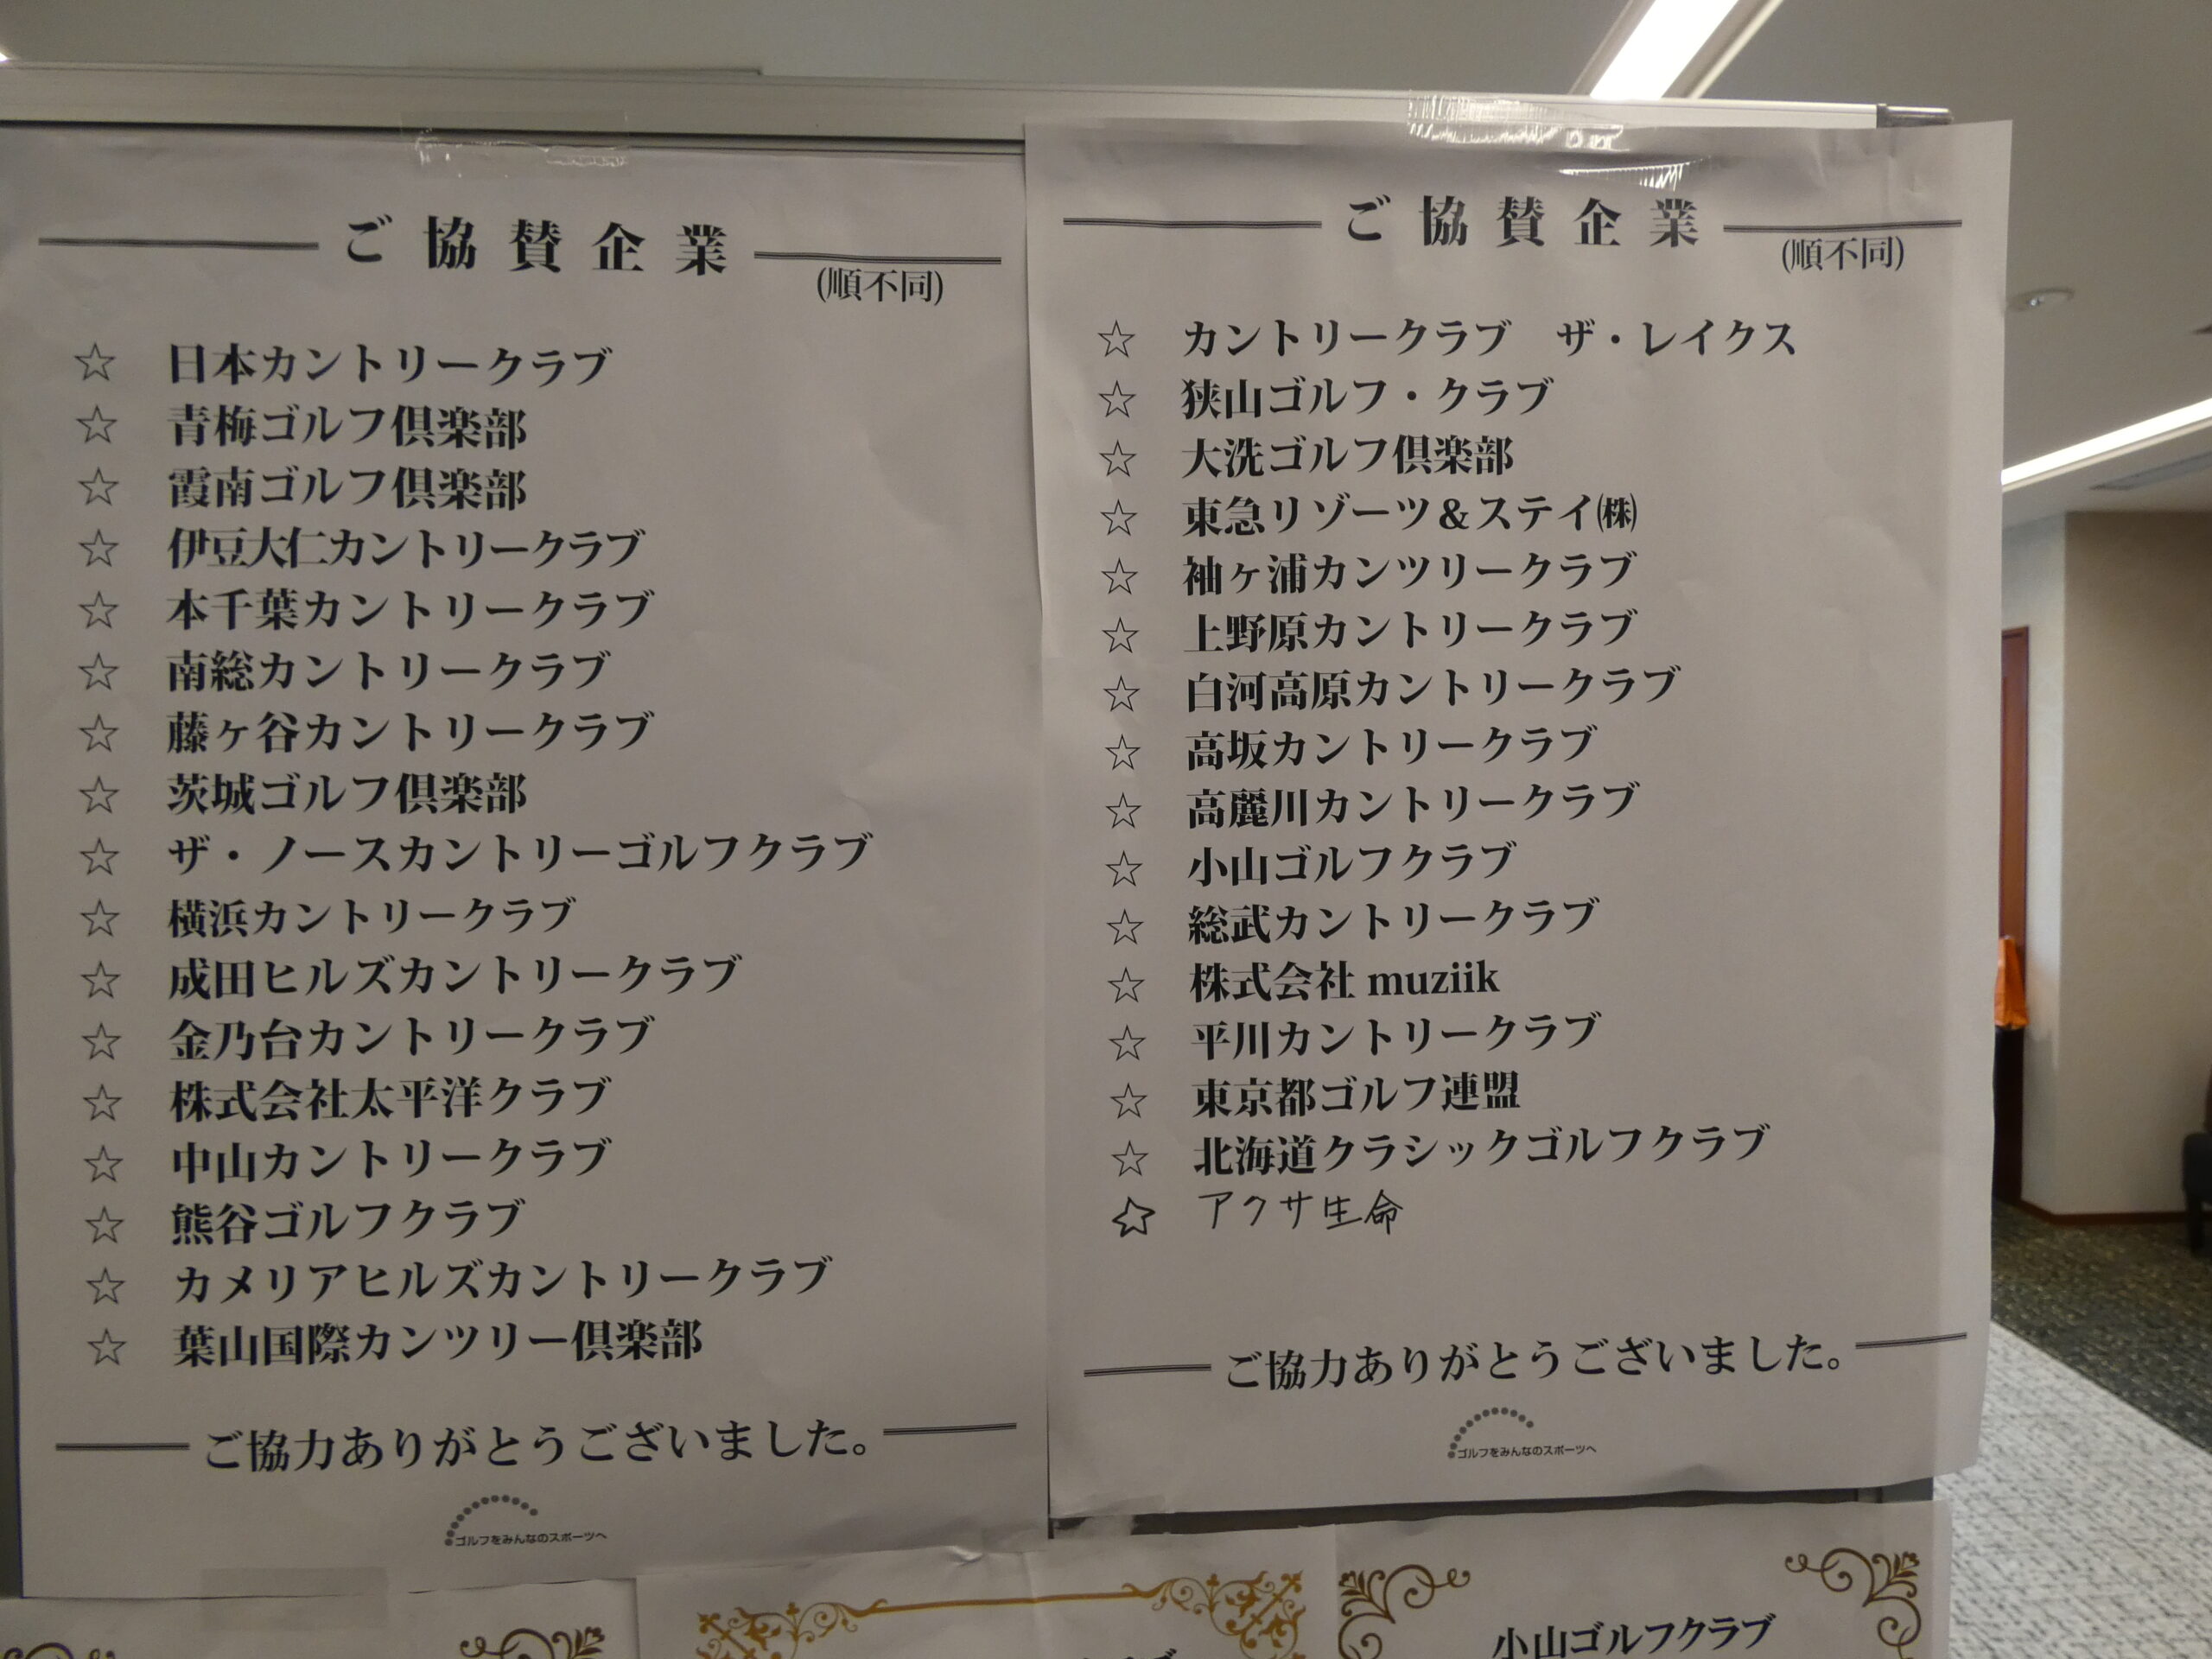 ご協賛企業
(順不同)
☆ 日本カントリークラブ
☆ 青梅ゴルフ倶楽部
☆ 霞南ゴルフ倶楽部
☆ 伊豆大仁カントリークラブ
☆ 本千葉カントリークラブ
☆ 南総カントリークラブ
☆ 藤ヶ谷カントリークラブ
☆ 茨城ゴルフ倶楽部
☆ ザ・ノースカントリーゴルフクラブ
☆ 横浜カントリークラブ
☆ 成田ヒルズカントリークラブ
☆ 金乃台カントリークラブ
☆ 株式会社太平洋クラブ
☆ 中山カントリークラブ
☆ 熊谷ゴルフクラブ
☆ カメリアヒルズカントリークラブ
☆ 葉山国際カンツリー倶楽部
ご協力ありがとうございました。
ゴルフをみんなのスポーツへ
ご協賛企業
(順不同)
☆ カントリークラブ　ザ・レイクス
☆ 狭山ゴルフ・クラブ
☆ 大洗ゴルフ倶楽部
☆ 東急リゾーツ＆ステイ㈱
☆ 袖ヶ浦カンツリークラブ
☆ 上野原カントリークラブ
☆ 白河高原カントリークラブ
☆ 高坂カントリークラブ
☆ 高麗川カントリークラブ
☆ 小山ゴルフクラブ
☆ 総武カントリークラブ
☆ 株式会社 muziik
☆ 平川カントリークラブ
☆ 東京都ゴルフ連盟
☆ 北海道クラシックゴルフクラブ
☆ アクサ生命
ご協力ありがとうございました。
ゴルフをみんなのスポーツへ
小山ゴルフクラブ